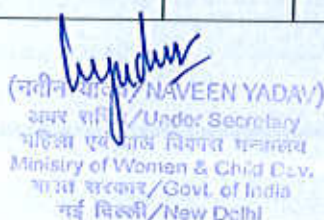 (नवीन यादव/NAVEEN YADAV)
अवर सचिव/Under Secretary
महिला एवं बाल विकास मन्त्रालय
Ministry of Women & Child Dev.
भारत सरकार/Govt. of India
नई दिल्ली/New Delhi